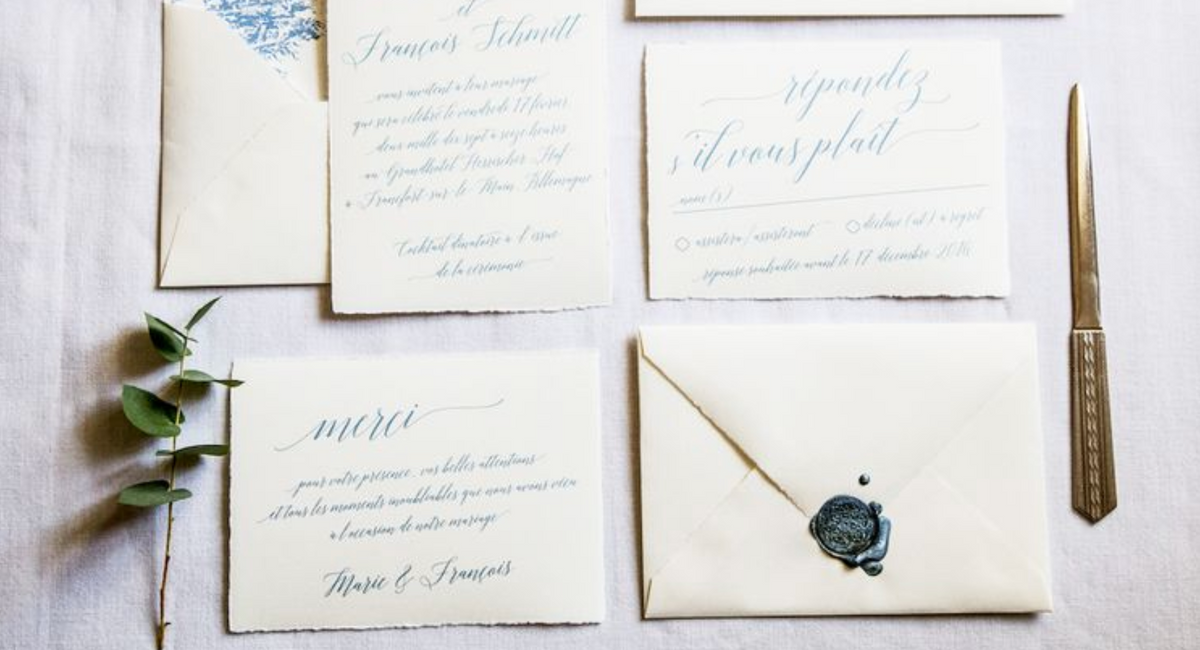 et
François Schmitt
vous invitent à leur mariage
qui sera célébré le vendredi 17 février
deux mille dix sept à seize heures
au Grandhotel Hessischer Hof
à Francfort-sur-le-Main, Allemagne
Cocktail dînatoire à l'issue
de la cérémonie
répondez
s'il vous plaît
nom(s)
assistera/assisteront
décline(nt) à regret
réponse souhaitée avant le 17 décembre 2016
merci
pour votre présence, vos belles attentions
et tous les moments inoubliables que nous avons vécu
à l'occasion de notre mariage
Marie & François